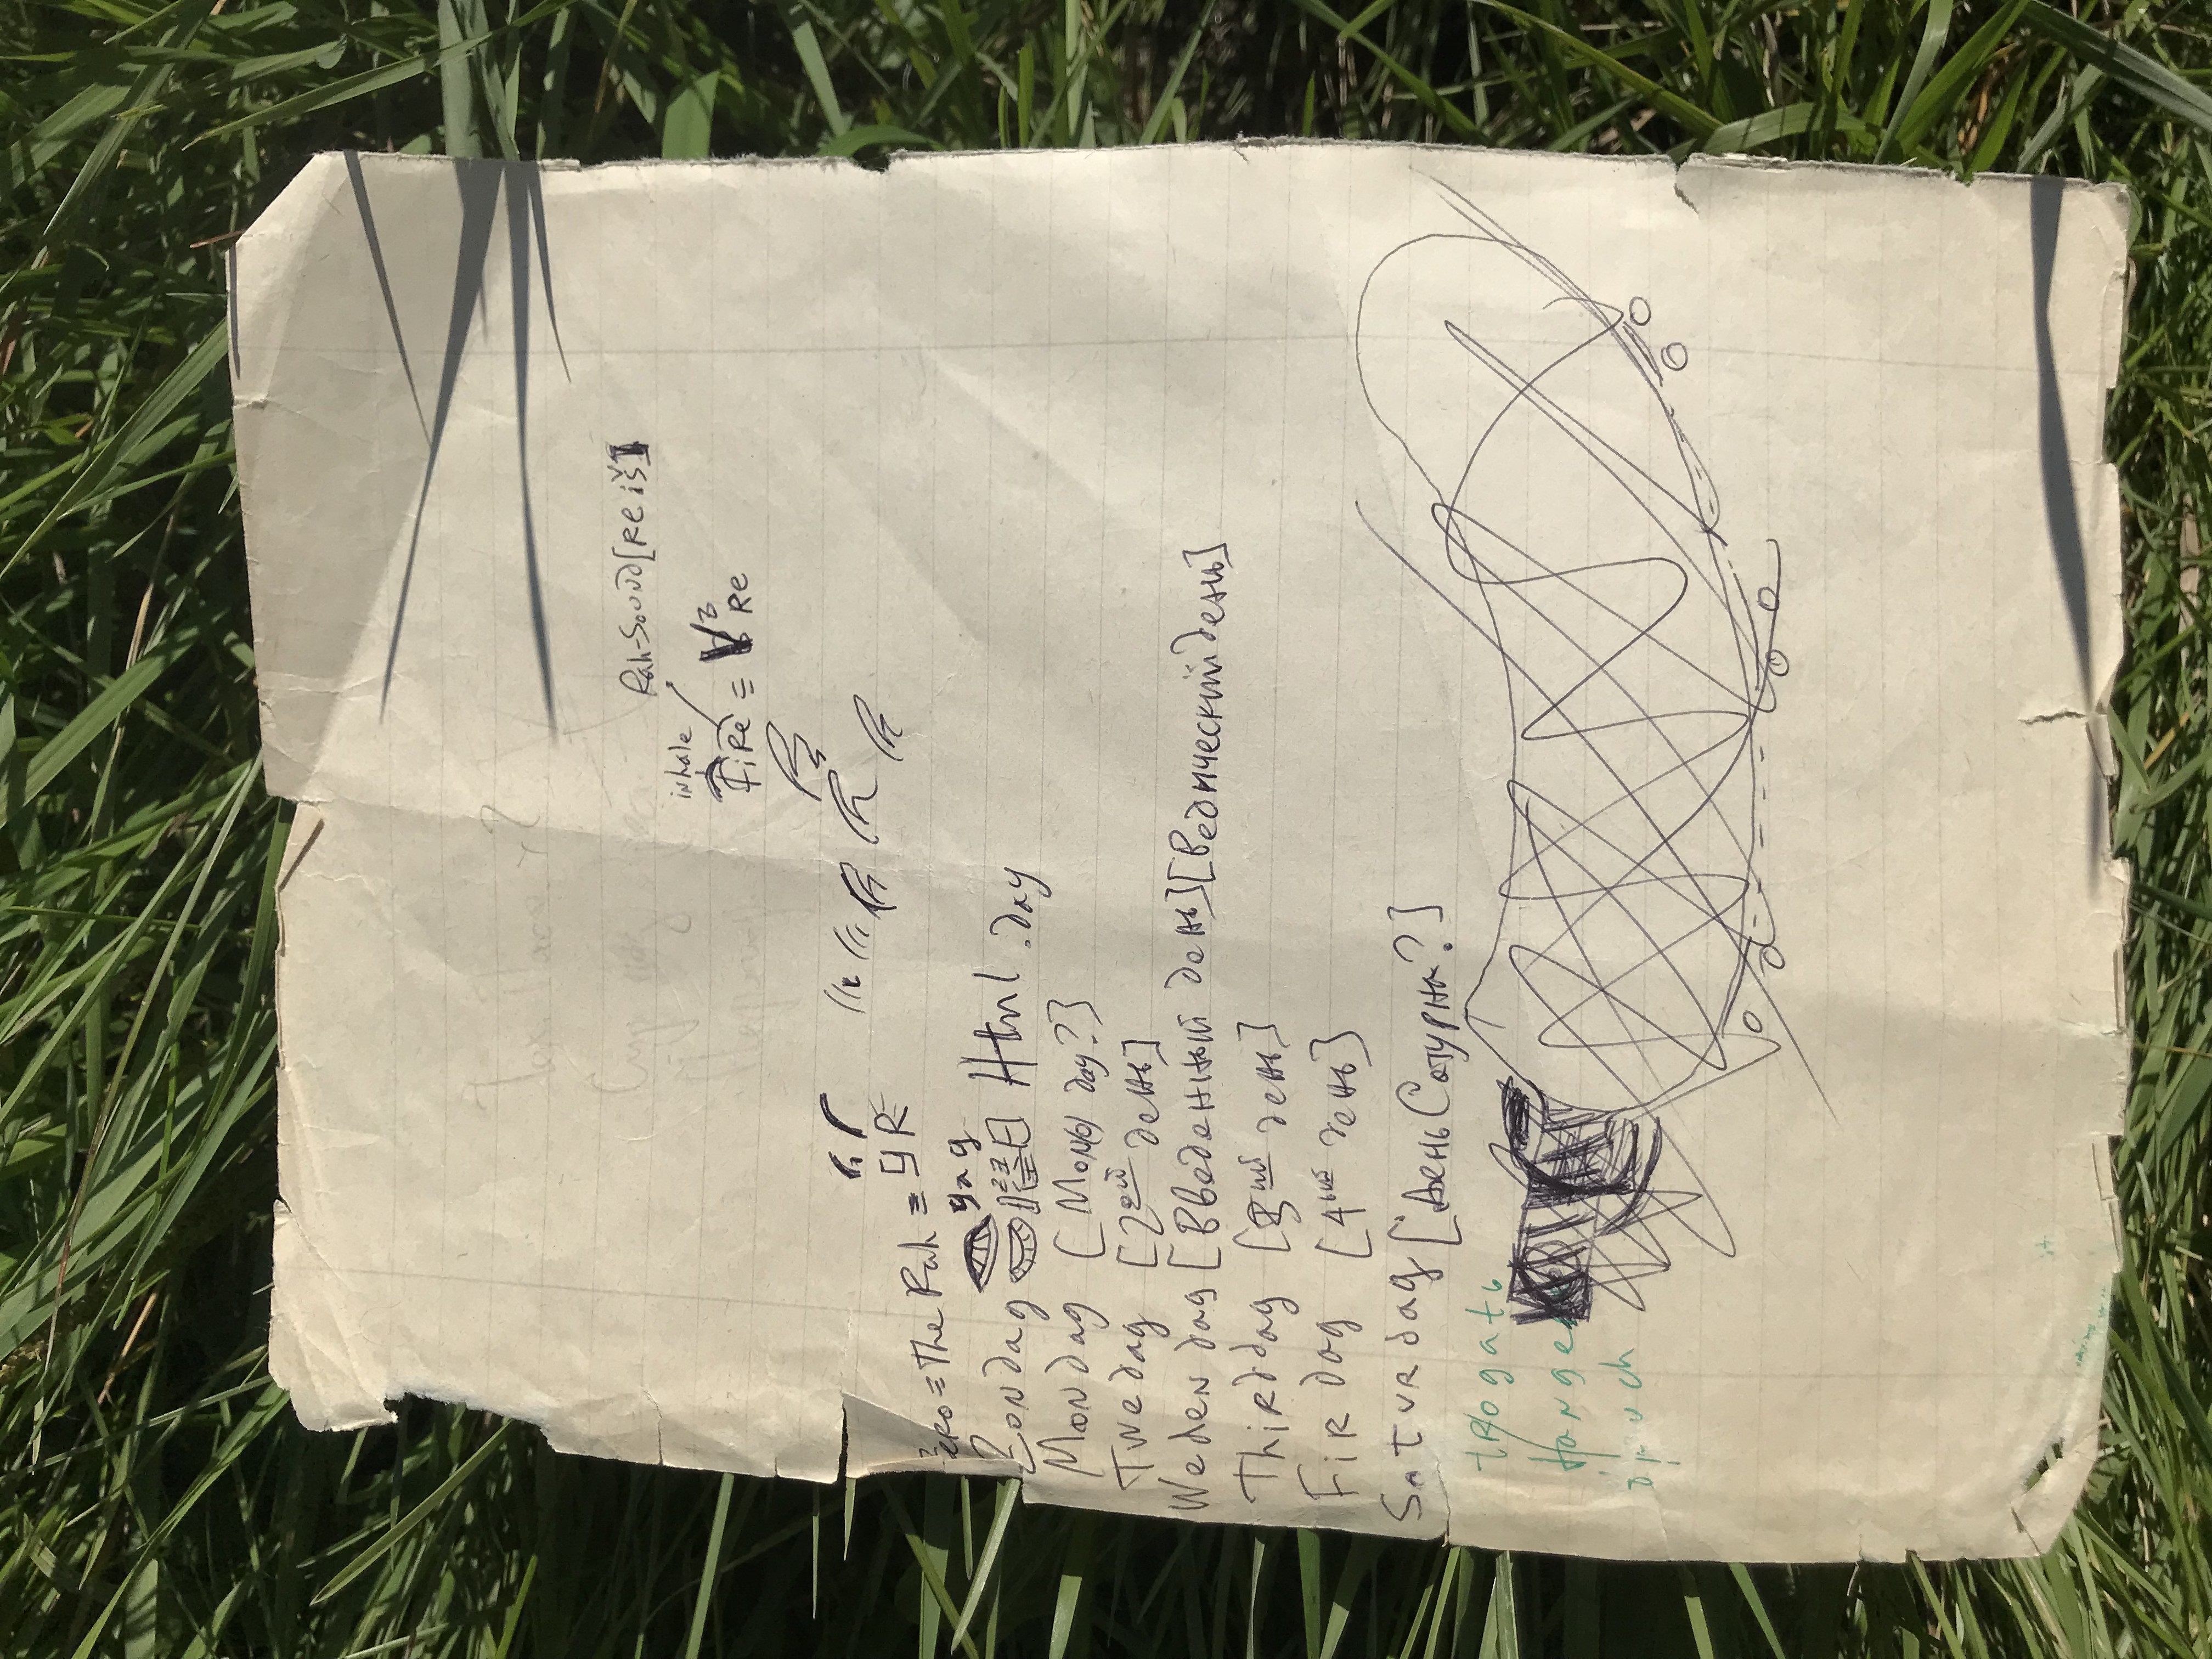 Rah-Sound [Re iš]
inhale
FiRe ≡ Re
yR
Zero ≡ The Rah ≡
gag
Zondag Html .day
Mondag [Mon(o) day?]
Twedag [2ой день]
Weden dag [Введенный день] [Ведический день]
Thirddag [3ий день]
Fir dag [4ый день]
Satur dag [День Сатурна?]
trogatь